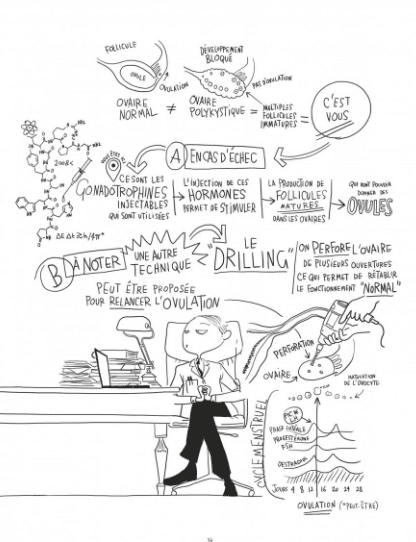 FOLLICULE
OVULE
OVULATION
DÉVELOPPEMENT
BLOQUÉ
PAS D'OVULATION
OVAIRE
NORMAL
≠
OVAIRE
POLYKYSTIQUE
=
MULTIPLES
FOLLICULES
IMMATURES
=
C'EST
VOUS
A EN CAS D'ÉCHEC
CE SONT LES
GONADOTROPHINES
INJECTABLES
QUI SONT UTILISÉES
L'INJECTION DE CES
HORMONES
PERMET DE STIMULER
LA PRODUCTION DE
FOLLICULES
MATURES
DANS LES OVAIRES
QUI VONT POUVOIR
DONNER DES
OVULES
B À NOTER
UNE AUTRE
TECHNIQUE
LE
"DRILLING"
ON PERFORE L'OVAIRE
DE PLUSIEURS OUVERTURES
CE QUI PERMET DE RÉTABLIR
LE FONCTIONNEMENT "NORMAL"
PEUT ÊTRE PROPOSÉE
POUR RELANCER L'OVULATION
PERFORATION
OVAIRE
MATURATION
DE L'OVOCYTE
CYCLE MENSTRUEL
PIC DE
LH
PROGESTÉRONE
FSH
OESTRADIOL
JOURS 4 8 12 16 20 24 28
OVULATION (*PEUT-ÊTRE)